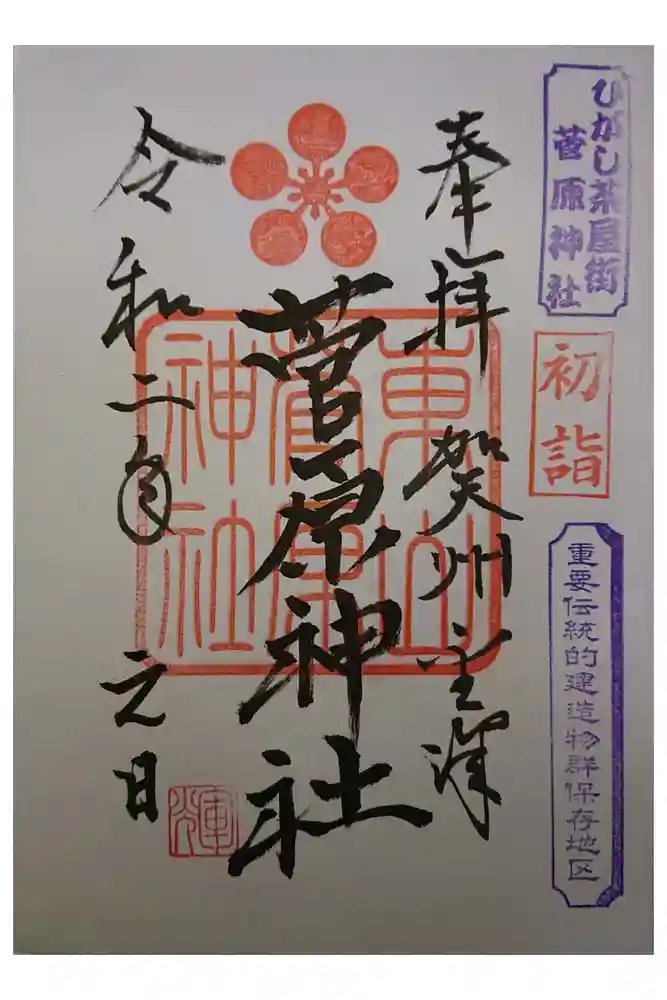 ひがし茶屋街
菅原神社
初詣
重要伝統的建造物群保存地区
奉拝 賀州金澤
菅原神社
東山
菅原
神社
令和二年 元日
輝